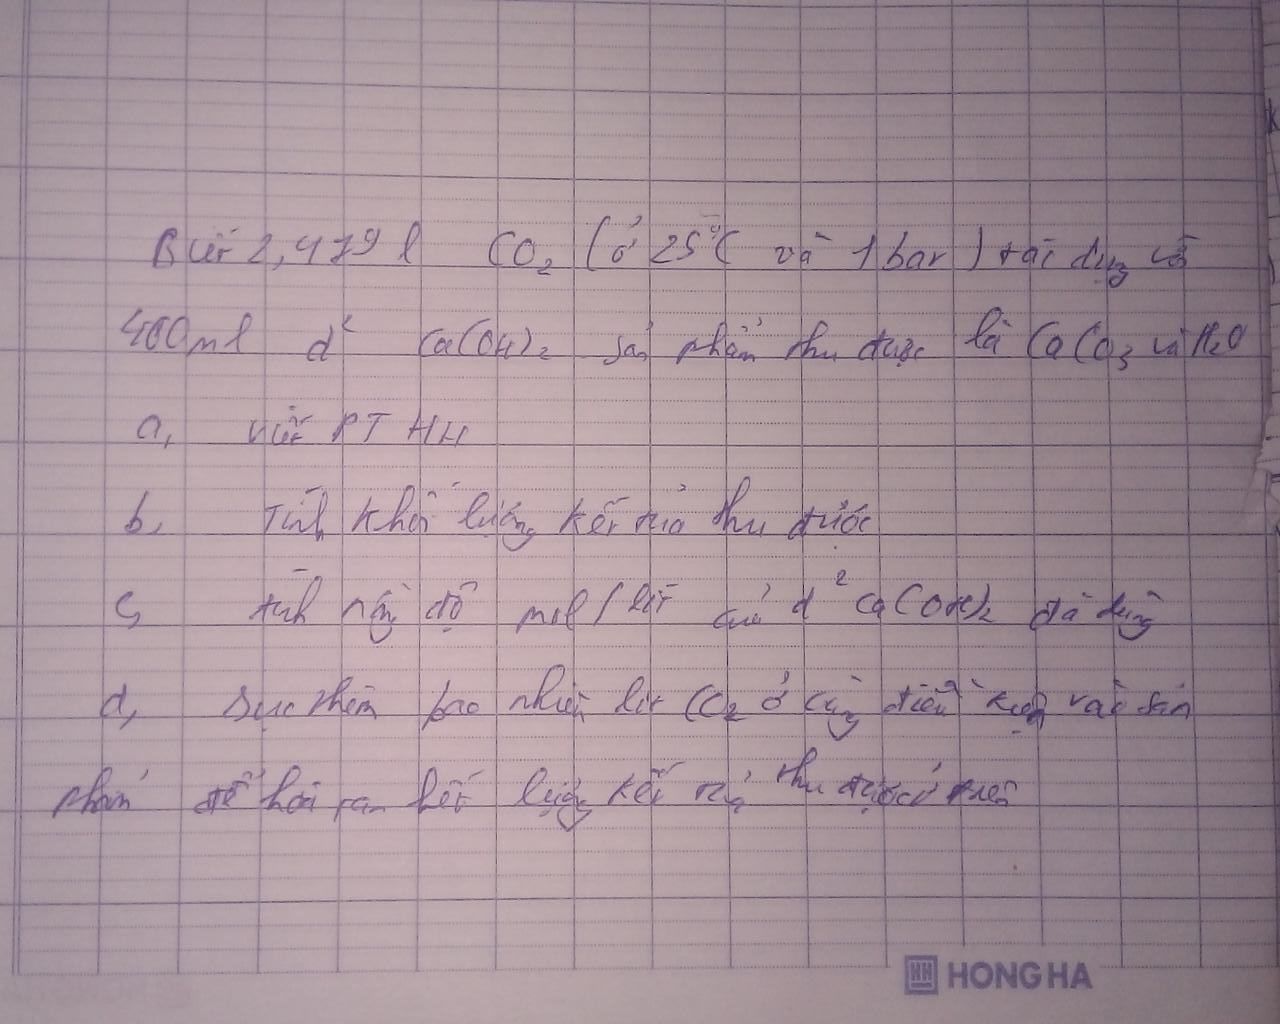 Biết 2,479 l CO₂ (ở 25°C và 1 bar) tác dụng với
400ml d² Ca(OH)₂ sản phẩm thu được là CaCO₃ và H₂O
a, viết PT HH
b, Tính khối lượng kết tủa thu được
c, tính nồng độ mol/lít của d² Ca(OH)₂ đã dùng
d, Sục thêm bao nhiêu lít CO₂ ở cùng điều kiện vào sản
phẩm để hòa tan hết lượng kết tủa thu được ở trên
HH HONG HA